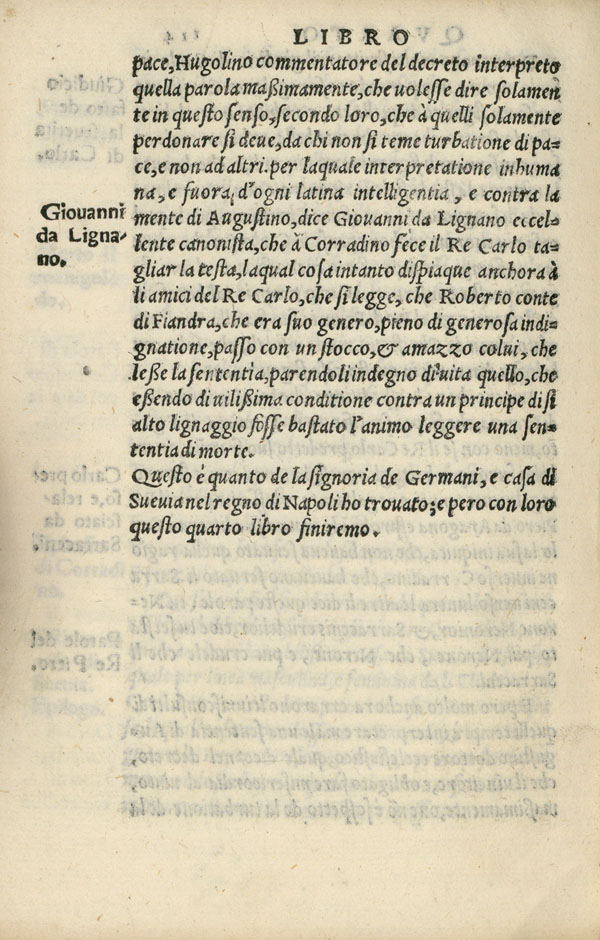 LIBRO
pace, Hugolino commentatore del decreto interpretò
quella parola maßimamente, che uolesse dire solamen
te in questo senso, secondo loro, che à quelli solamente
perdonare si deue, da chi non si teme turbatione di pa=
ce, e non ad altri. per laquale interpretatione inhuma
na, e fuora, d'ogni latina intelligentia, e contra la
mente di Augustino, dice Giouanni da Lignano eccel=
lente canonista, che à Corradino fece il Re Carlo ta=
gliar la testa, laqual cosa intanto dispiaque anchora à
li amici del Re Carlo, che si legge, che Roberto conte
di Fiandra, che era suo genero, pieno di generosa indi=
gnatione, passo con un stocco, & amazzo colui, che
leße la sententia, parendoli indegno di uita quello, che
eßendo di uilißima conditione contra un principe di si
alto lignaggio fosse bastato l'animo leggere una sen=
tentia di morte.
Questo è quanto de la signoria de Germani, e casa di
Sueuia nel regno di Napoli ho trouato; e pero con loro
questo quarto libro finiremo.
Giouanni
da Ligna-
no.